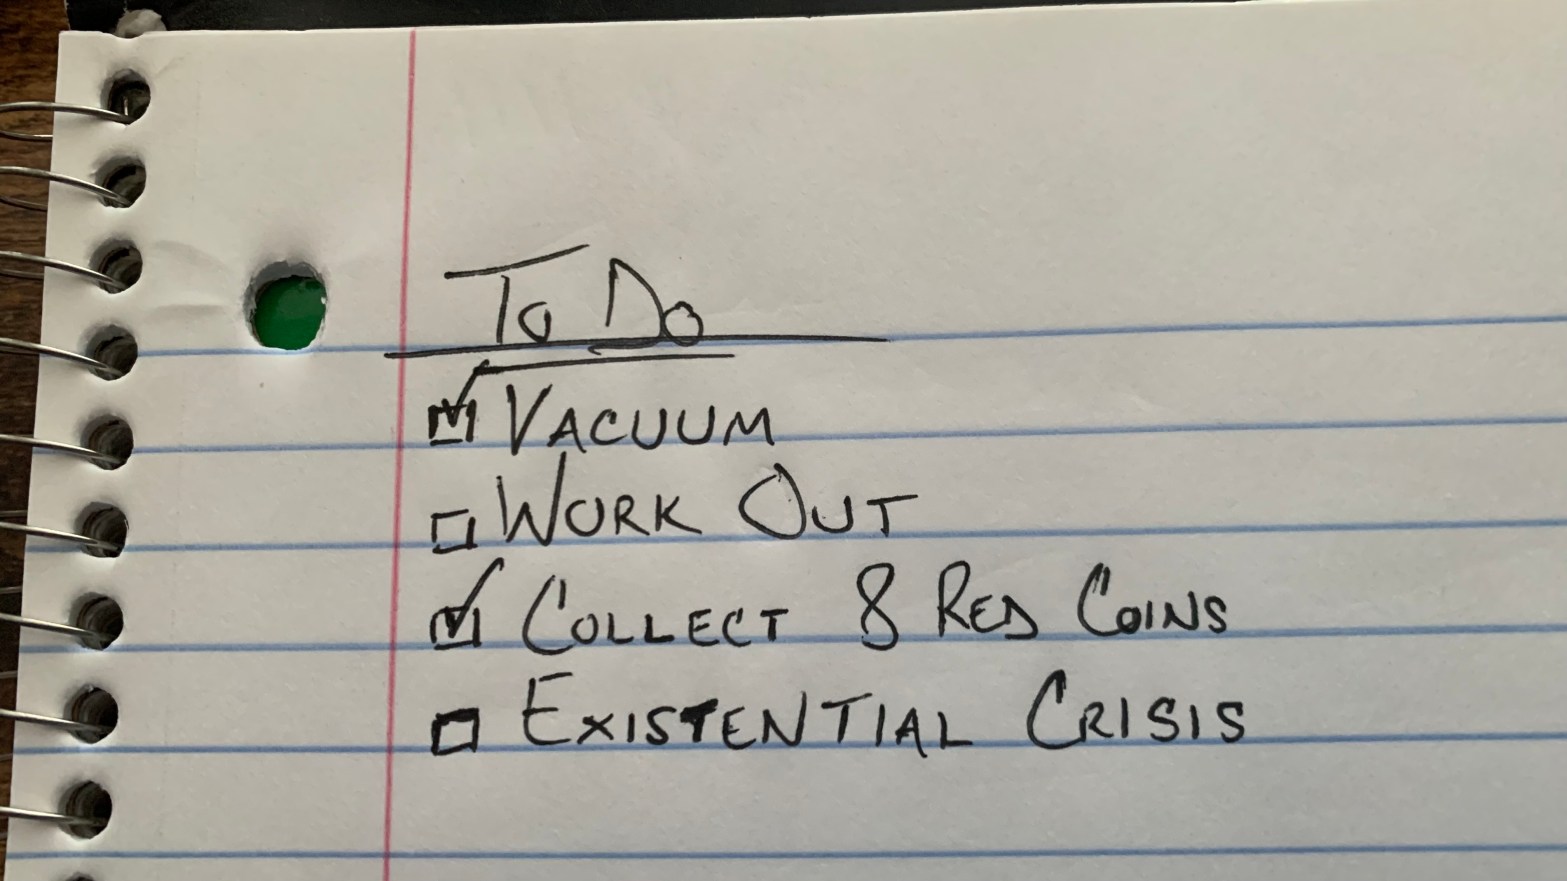 To Do
☑ VACUUM
☐ WORK OUT
☑ COLLECT 8 RED COINS
☐ EXISTENTIAL CRISIS